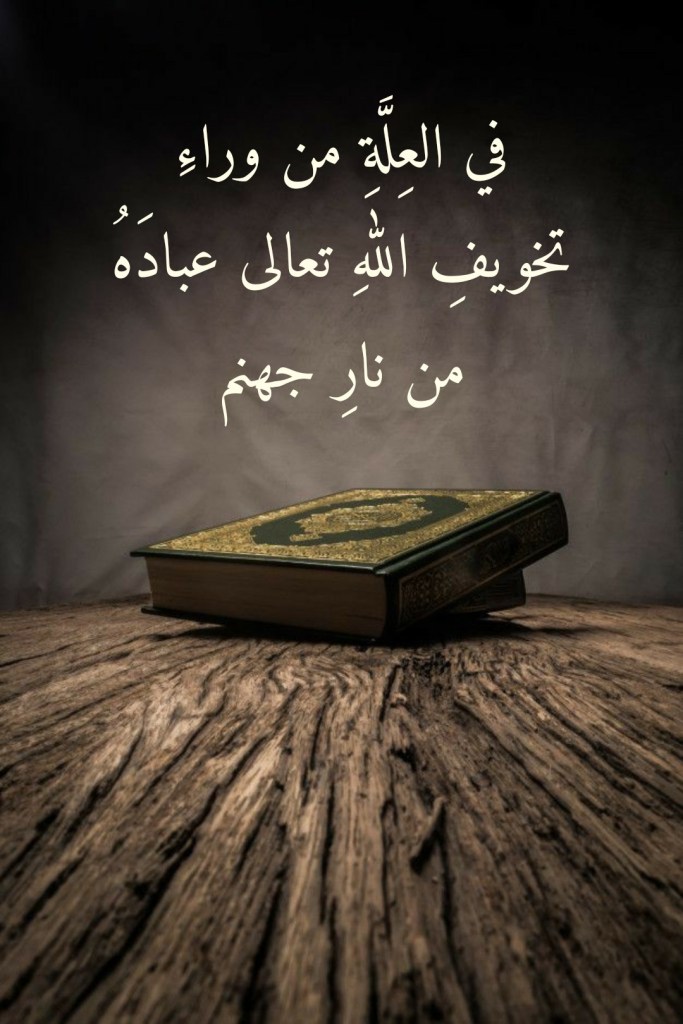 في العِلَّةِ من وراءِ
تخويفِ اللهِ تعالى عبادَهُ
من نارِ جهنم